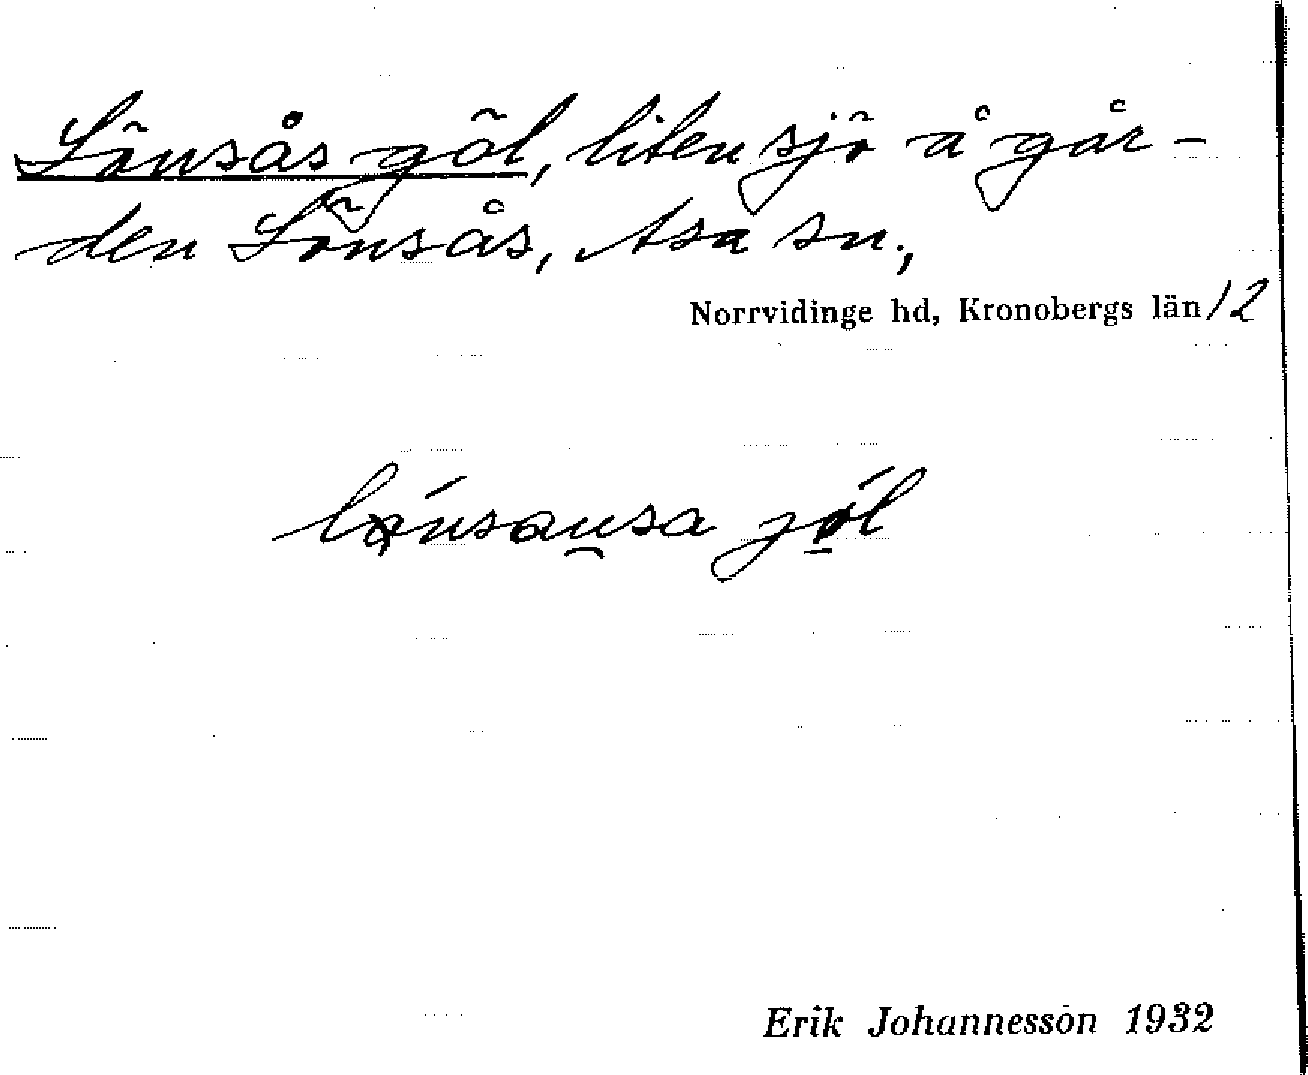 Lönsås göl, liten sjö å går-
den Lönsås, Asa sn.,
Norrvidinge hd, Kronobergs län/2
göl
Erik Johannesson 1932